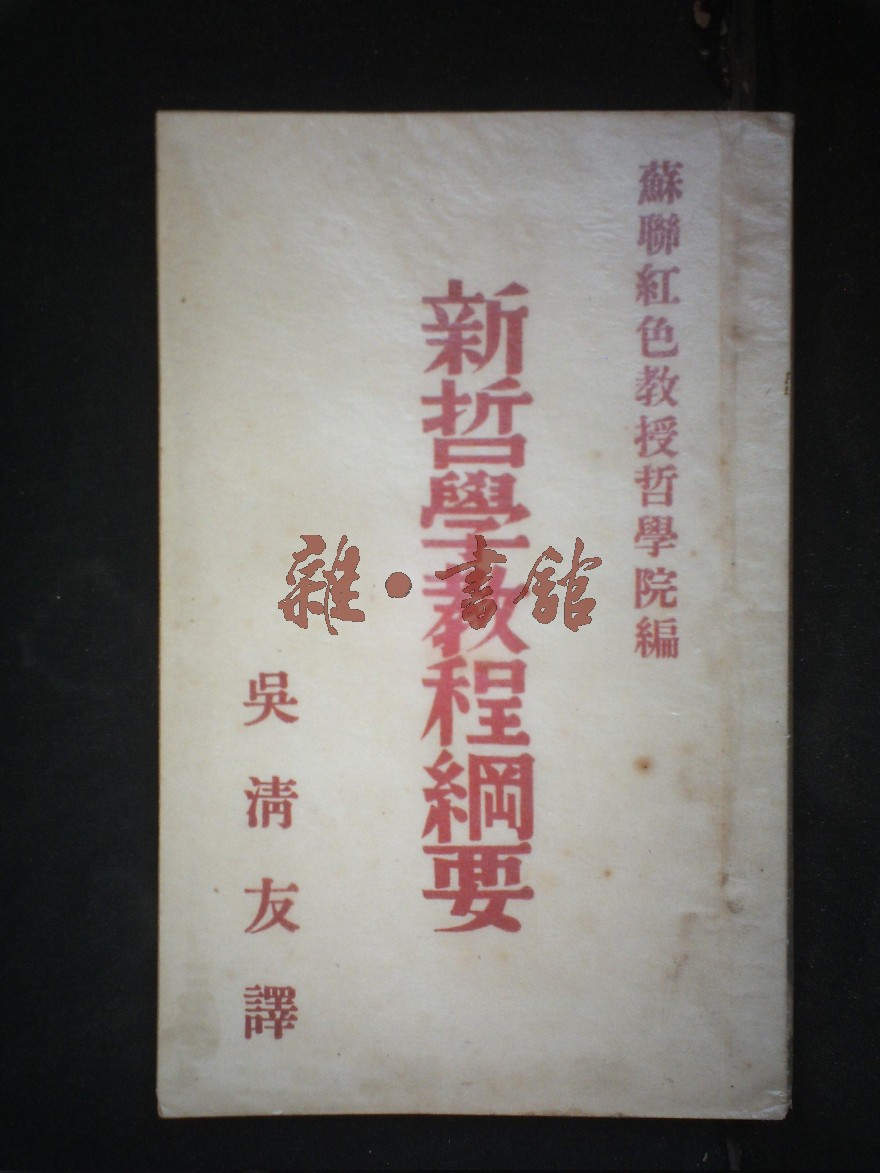 蘇聯紅色教授哲學院編
新哲學教程綱要
吳清友譯
雜·書館